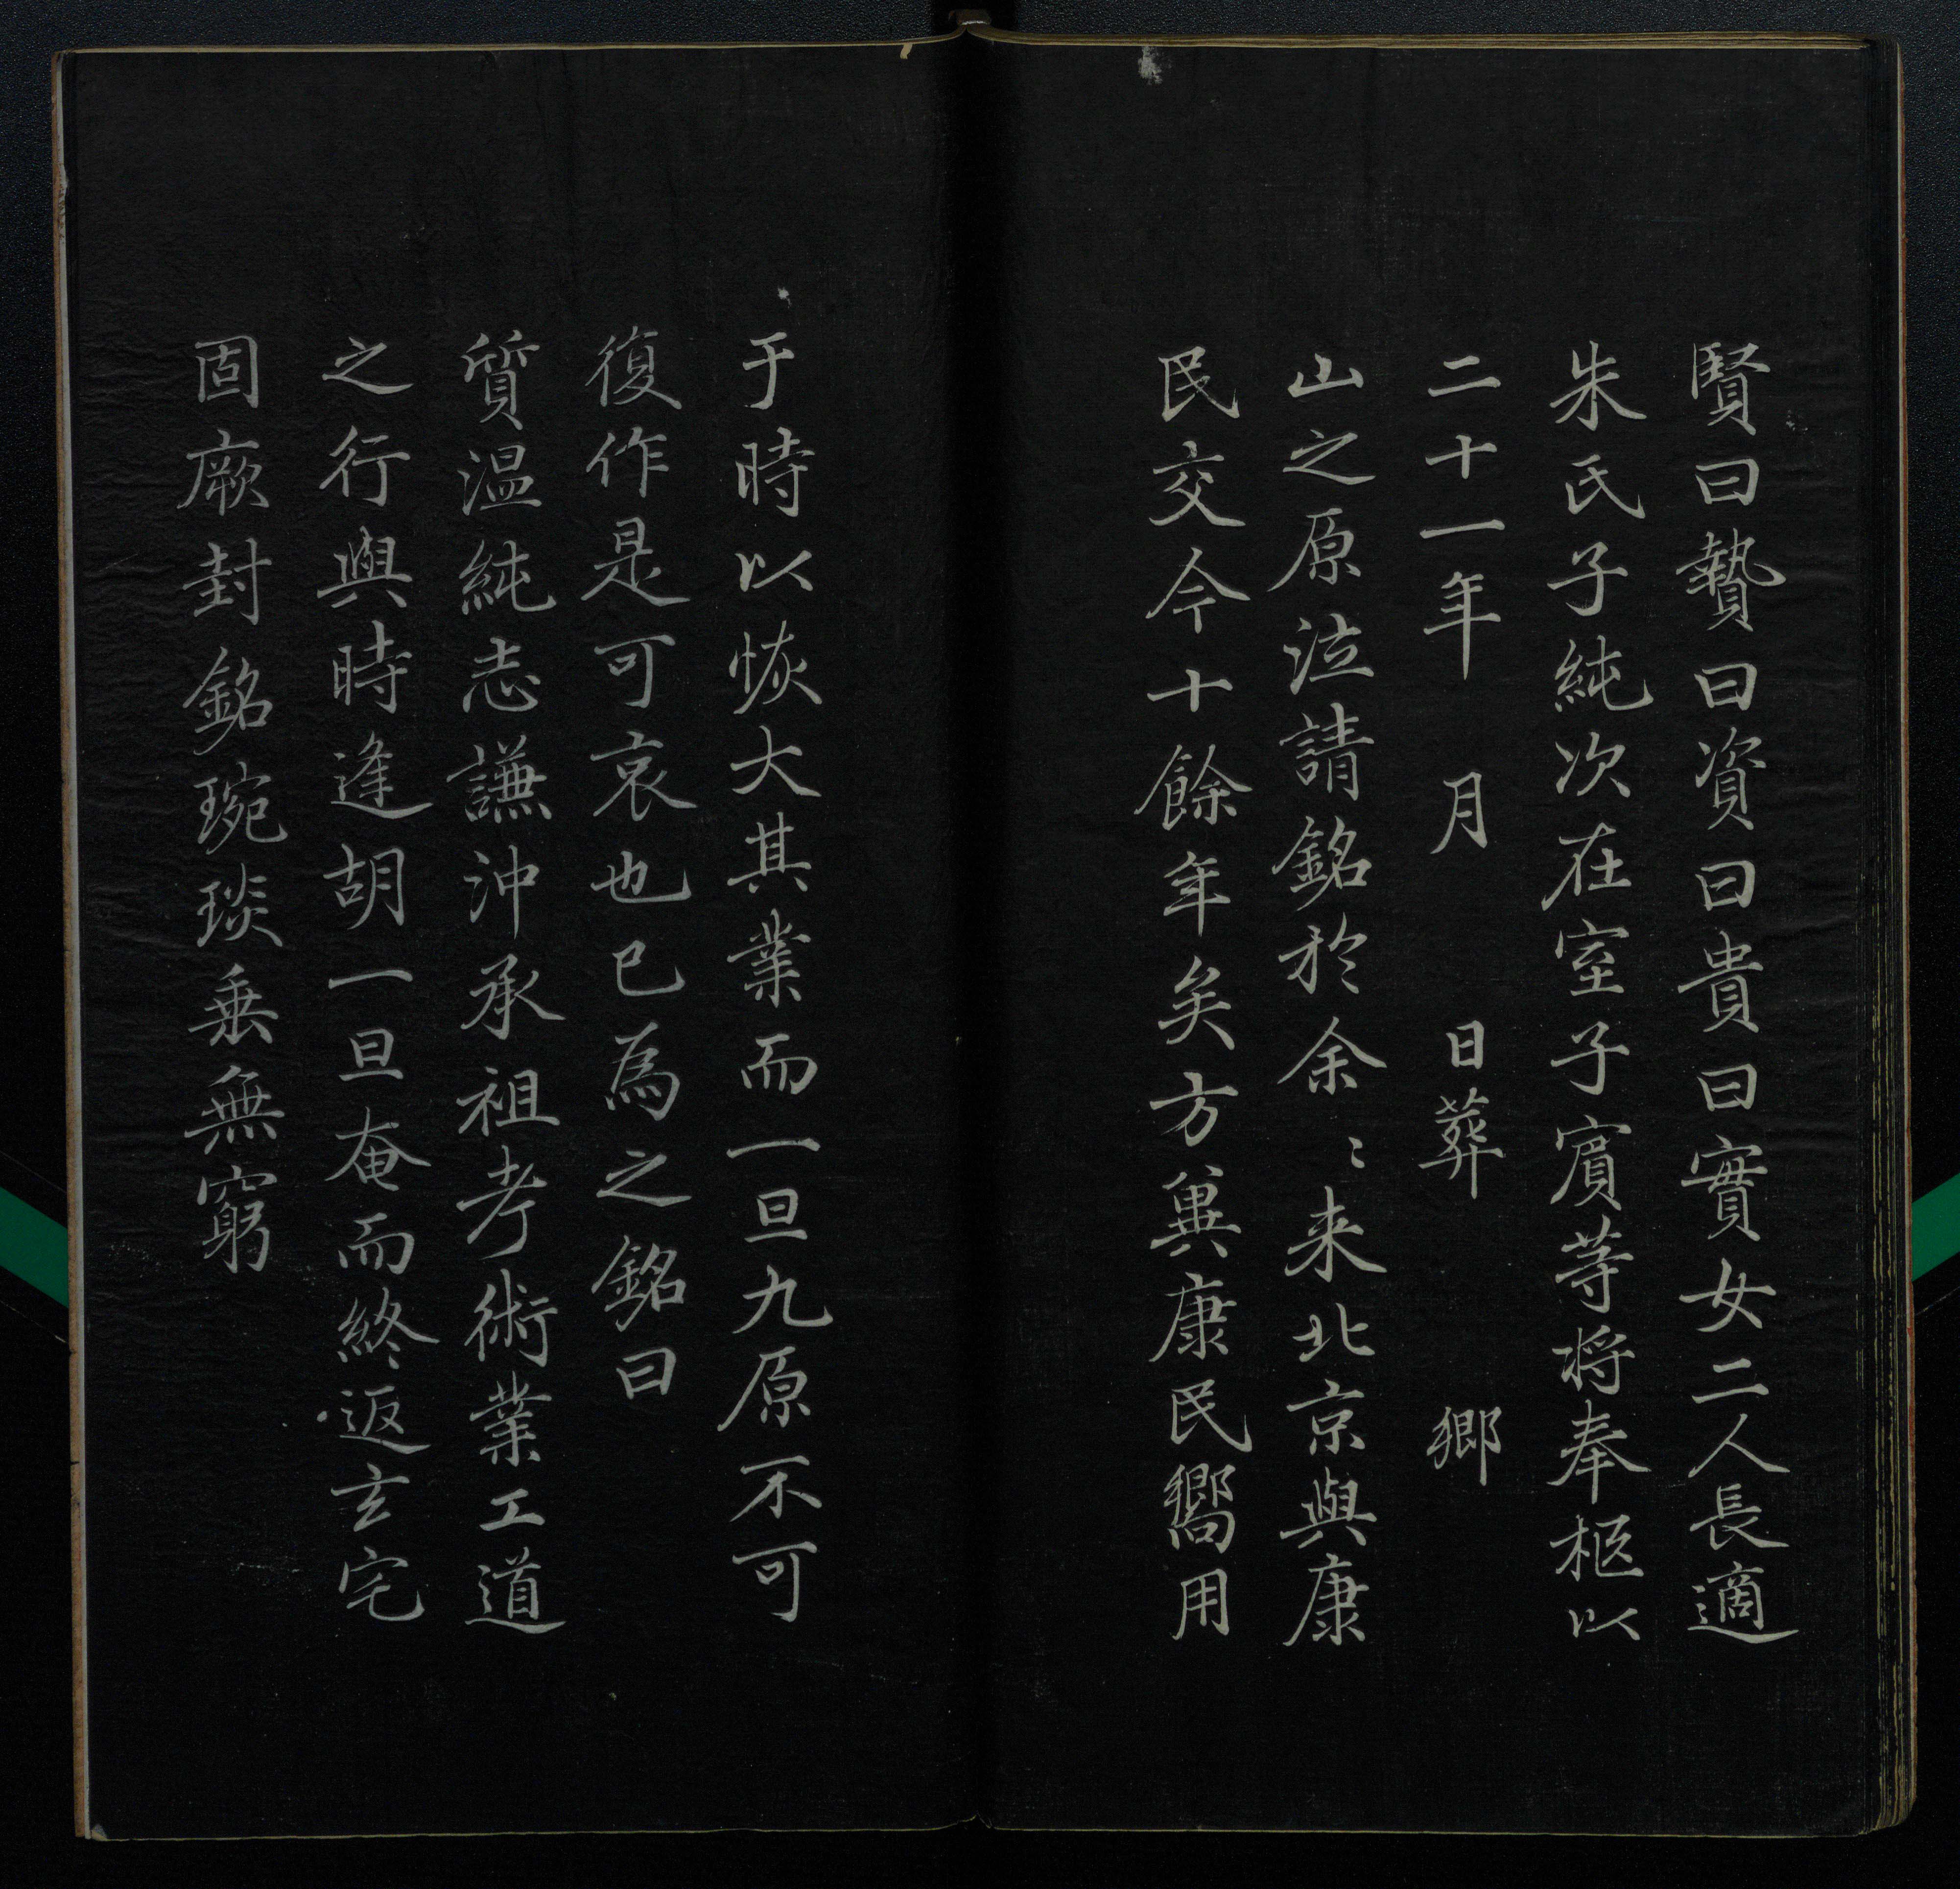 賢曰贄曰資曰貴曰實女二人長適
朱氏子純次在室子賔等将奉柩以
二十一年　月　日葬　鄉
山之原泣請銘於余〻来北京與康
民交今十餘年矣方兾康民嚮用
于時以恢大其業而一旦九原不可
復作是可哀也已為之銘曰
質温純志謙沖承祖考術業工道
之行與時逢胡一旦奄而終返玄宅
固厥封銘琬琰垂無窮